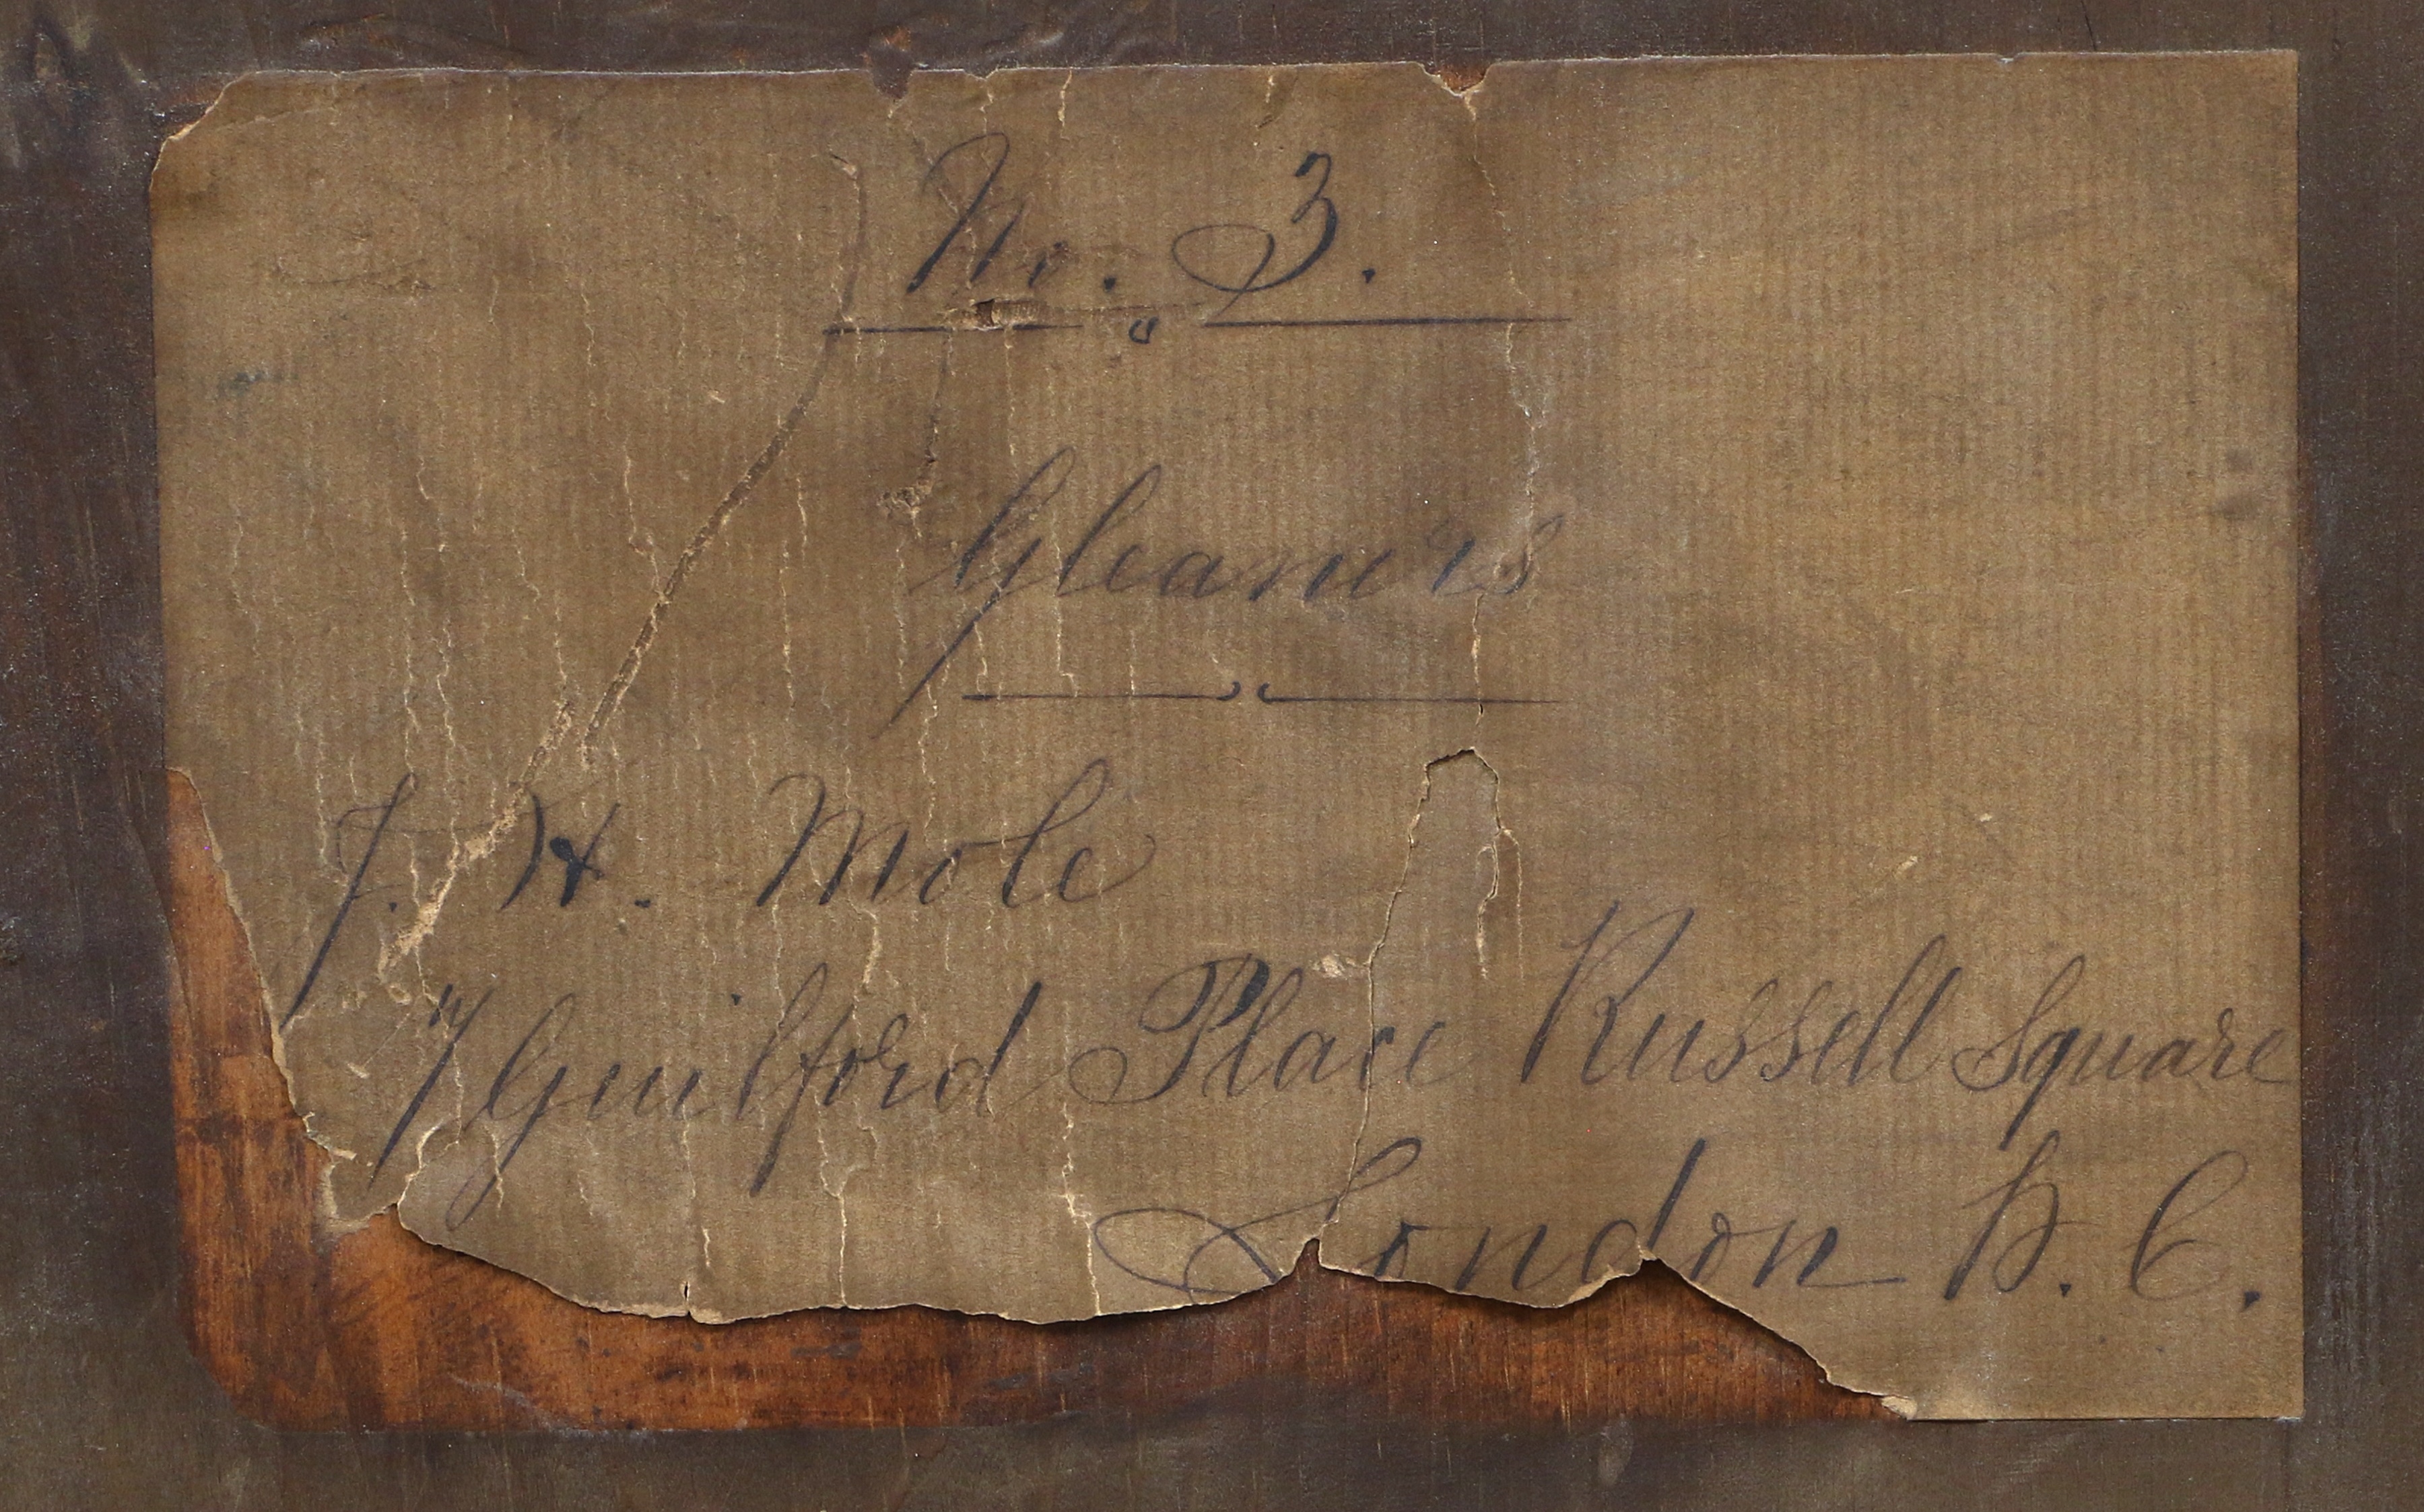 No. 3.
Gleaners
J. H. Mole
7 Guilford Place Russell Square
London W. C.